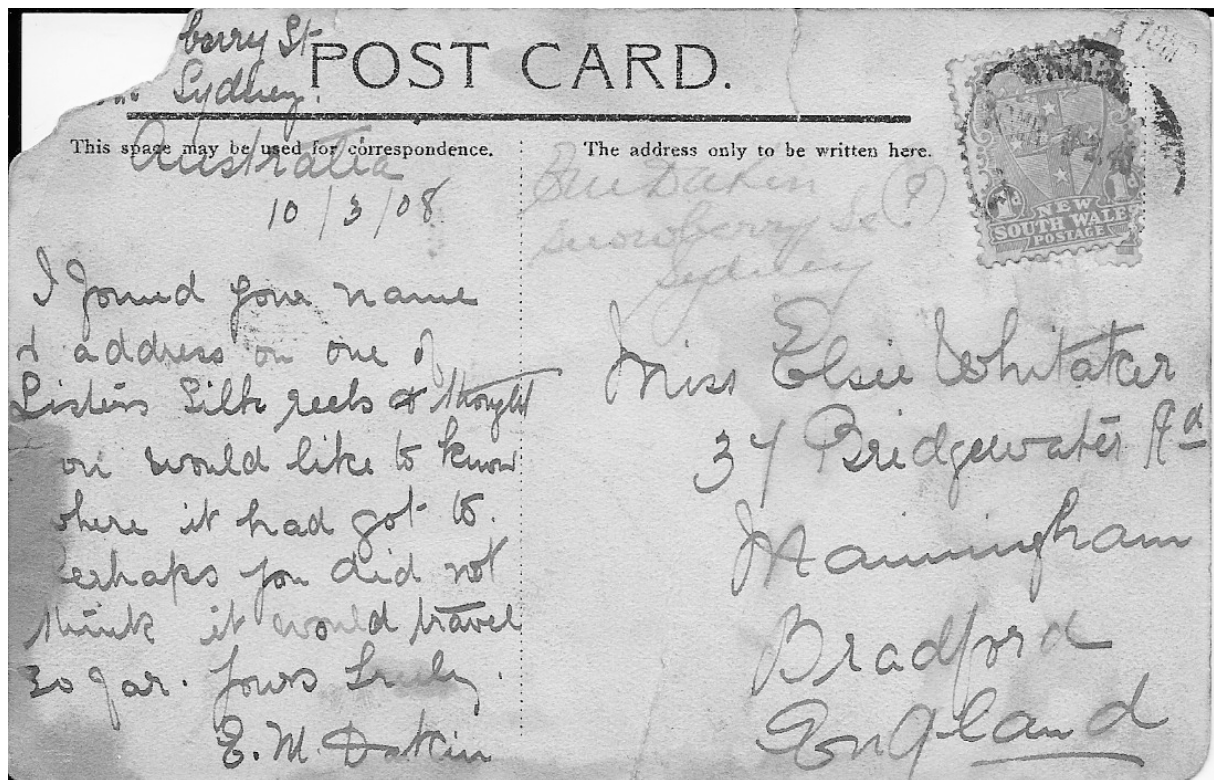 berry St
Sydney.
Australia
10/3/08
POST CARD.
This space may be used for correspondence.
The address only to be written here.
I found your name
& address on one of
Listers Silk reels & thought
ou would like to know
where it had got to.
erhaps you did not
think it would travel
so far. Yours truly.
E. M. Dakin
Dakin
Snowberry St (?)
Sydney
NEW
SOUTH WALES
POSTAGE
1d
1d
Miss Elsie Whitaker
37 Bridgewater Rd
Manningham
Bradford
England